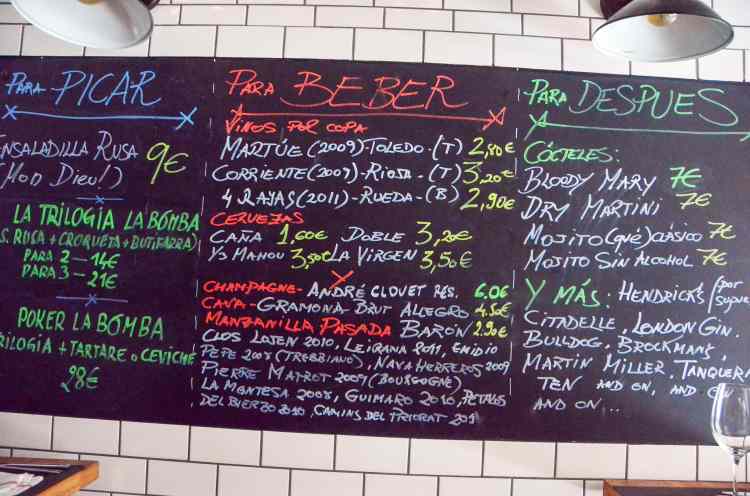 PARA PICAR
ENSALADILLA RUSA 9€
(MON DIEU!)
LA TRILOGIA LA BOMBA
(S. RUSA + CROQUETA + BUTIFARRA)
PARA 2 — 14€
PARA 3 — 21€
POKER LA BOMBA
TRILOGIA + TARTARE O CEVICHE
28€
PARA BEBER
VINOS POR COPA
MARTÚE (2009)-TOLEDO-(T) 2,80€
CORRIENTE (2009)-RIOJA-(T) 3,20€
4 RAYAS (2011)-RUEDA-(B) 2,90€
CERVEZAS
CAÑA 1,60€ DOBLE 3,20€
1/3 MAHOU 3,50€ LA VIRGEN 3,50€
CHAMPAGNE- ANDRÉ CLOUET RES. 6.0€
CAVA- GRAMONA-BRUT ALLEGRO 4.50€
MANZANILLA PASADA BARÓN 2.90€
CLOS LOJEN 2010, LEIRANA 2011, EMIDIO
PEPE 2008 (TREBBIANO), NAVAHERREROS 2009
PIERRE MATROT 2009 (BOURGOGNE)
LA MONTESA 2008, GUIMARO 2010, PÉTALOS
DEL BIERZO 2010, CAMINS DEL PRIORAT 201
PARA DESPUES
CÓCTELES:
BLOODY MARY 7€
DRY MARTINI 7€
MOJITO (QUÉ) CLÁSICO 7€
MOJITO SIN ALCOHOL 7€
Y MÁS: HENDRICKS (POR
CITADELLE, LONDON GIN.
BULLDOG, BROCKMANS,
MARTIN MILLER, TANQUERA
TEN AND ON, AND ON
AND ON...